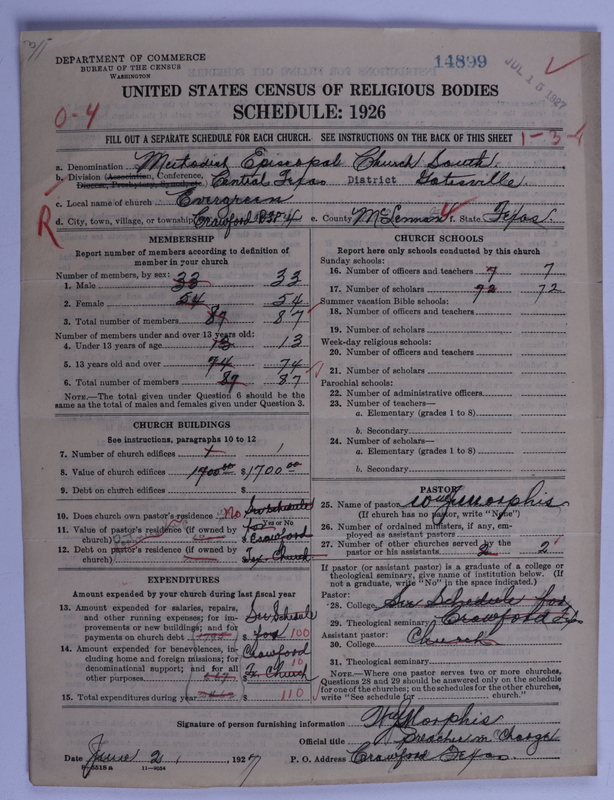 DEPARTMENT OF COMMERCE
BUREAU OF THE CENSUS
WASHINGTON
14899
JUL 15 1927
UNITED STATES CENSUS OF RELIGIOUS BODIES
SCHEDULE: 1926
0-4
FILL OUT A SEPARATE SCHEDULE FOR EACH CHURCH. SEE INSTRUCTIONS ON THE BACK OF THIS SHEET
1-3-
a. Denomination Methodist Episcopal Church South.
b. Division (Association, Conference, Diocese, Presbytery, Synod, etc.) Central Texas District Gatesville
c. Local name of church Evergreen
R
d. City, town, village, or township Crawford e. County McLennan f. State Texas.
MEMBERSHIP
Report number of members according to definition of member in your church
Number of members, by sex:
1. Male 33 33
2. Female 54 54
3. Total number of members 87 87
Number of members under and over 13 years old:
4. Under 13 years of age 13 13
5. 13 years old and over 74 74
6. Total number of members 87 87
NOTE.—The total given under Question 6 should be the same as the total of males and females given under Question 3.
CHURCH BUILDINGS
See instructions, paragraphs 10 to 12
7. Number of church edifices 1 1
8. Value of church edifices 1700.00 $ 1700.00
9. Debt on church edifices $
10. Does church own pastor's residence? No See Schedule
Yes or No
11. Value of pastor's residence (if owned by church) for $ Crawford
12. Debt on pastor's residence (if owned by church) Tex Church
EXPENDITURES
Amount expended by your church during last fiscal year
13. Amount expended for salaries, repairs, and other running expenses; for improvements or new buildings; and for payments on church debt See Schedule $ for 100
14. Amount expended for benevolences, including home and foreign missions; for denominational support; and for all other purposes Crawford 10 Tx Church
15. Total expenditures during year $ 110
CHURCH SCHOOLS
Report here only schools conducted by this church
Sunday schools:
16. Number of officers and teachers 7 7
17. Number of scholars 72 72
Summer vacation Bible schools:
18. Number of officers and teachers
19. Number of scholars
Week-day religious schools:
20. Number of officers and teachers
21. Number of scholars
Parochial schools:
22. Number of administrative officers
23. Number of teachers—
a. Elementary (grades 1 to 8)
b. Secondary
24. Number of scholars—
a. Elementary (grades 1 to 8)
b. Secondary
PASTOR
25. Name of pastor Morphis
(If church has no pastor, write "None")
26. Number of ordained ministers, if any, employed as assistant pastors
27. Number of other churches served by the pastor or his assistants 2 2
If pastor (or assistant pastor) is a graduate of a college or theological seminary, give name of institution below. (If not a graduate, write "No" in the space indicated.)
Pastor:
28. College See Schedule for
29. Theological seminary Crawford Tex
Assistant pastor:
30. College Church
31. Theological seminary
NOTE.—Where one pastor serves two or more churches, Questions 28 and 29 should be answered only on the schedule for one of the churches; on the schedules for the other churches, write "See schedule for church."
Signature of person furnishing information Morphis
Official title Preacher in Charge
Date June 2, 1927 P. O. Address Crawford Texas.
8-5518a 11-9054